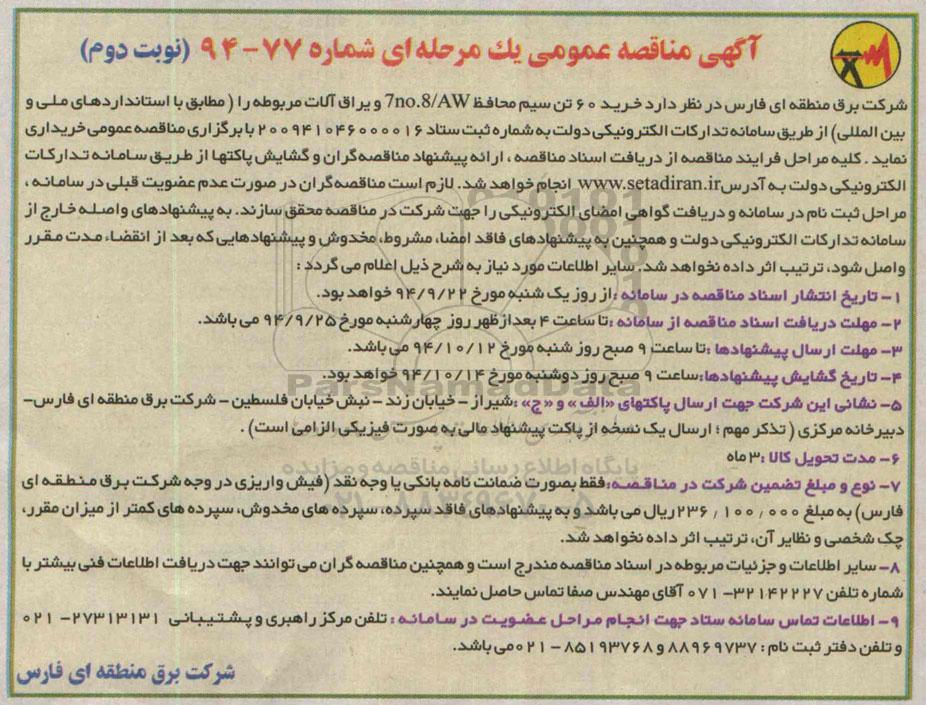 آگهی مناقصه عمومی یك مرحله ای شماره ۷۷-۹۴ (نوبت دوم)
شرکت برق منطقه ای فارس در نظر دارد خرید ۶۰ تن سیم محافظ 7no.8/AW و یراق آلات مربوطه را ( مطابق با استانداردهای ملی و
بین المللی) از طریق سامانه تدارکات الکترونیکی دولت به شماره ثبت ستاد ۲۰۰۹۴۱۰۴۶۰۰۰۰۱۶ با برگزاری مناقصه عمومی خریداری
نماید . کلیه مراحل فرایند مناقصه از دریافت اسناد مناقصه ، ارائه پیشنهاد مناقصه‌گران و گشایش پاکتها از طریق سامانه تدارکات
الکترونیکی دولت به آدرس www.setadiran.ir انجام خواهد شد. لازم است مناقصه‌گران در صورت عدم عضویت قبلی در سامانه ،
مراحل ثبت نام در سامانه و دریافت گواهی امضای الکترونیکی را جهت شرکت در مناقصه محقق سازند. به پیشنهادهای واصله خارج از
سامانه تدارکات الکترونیکی دولت و همچنین به پیشنهادهای فاقد امضا، مشروط، مخدوش و پیشنهادهایی که بعد از انقضاء مدت مقرر
واصل شود، ترتیب اثر داده نخواهد شد. سایر اطلاعات مورد نیاز به شرح ذیل اعلام می گردد :
۱- تاریخ انتشار اسناد مناقصه در سامانه :از روز یک شنبه مورخ ۹۴/۹/۲۲ خواهد بود.
۲- مهلت دریافت اسناد مناقصه از سامانه :تا ساعت ۴ بعدازظهر روز چهارشنبه مورخ ۹۴/۹/۲۵ می باشد.
۳- مهلت ارسال پیشنهادها :تا ساعت ۹ صبح روز شنبه مورخ ۹۴/۱۰/۱۲ می باشد.
۴- تاریخ گشایش پیشنهادها:ساعت ۹ صبح روز دوشنبه مورخ ۹۴/۱۰/۱۴ خواهد بود.
ParsNamadData
۵- نشانی این شرکت جهت ارسال پاکتهای «الف» و «ج» :شیراز - خیابان زند - نبش خیابان فلسطین - شرکت برق منطقه ای فارس-
دبیرخانه مرکزی ( تذکر مهم ؛ ارسال یک نسخه از پاکت پیشنهاد مالی به صورت فیزیکی الزامی است) .
۶- مدت تحویل کالا :۳ ماه
پایگاه اطلاع رسانی مناقصه و مزایده
۷- نوع و مبلغ تضمین شرکت در مناقصه:فقط بصورت ضمانت نامه بانکی یا وجه نقد (فیش واریزی در وجه شرکت برق منطقه ای
فارس) به مبلغ ۲۳۶,۱۰۰,۰۰۰ ریال می باشد و به پیشنهادهای فاقد سپرده، سپرده های مخدوش، سپرده های کمتر از میزان مقرر،
چک شخصی و نظایر آن، ترتیب اثر داده نخواهد شد.
۸- سایر اطلاعات و جزئیات مربوطه در اسناد مناقصه مندرج است و همچنین مناقصه گران می توانند جهت دریافت اطلاعات فنی بیشتر با
شماره تلفن ۳۲۱۴۲۲۲۷- ۰۷۱ آقای مهندس صفا تماس حاصل نمایند.
۹- اطلاعات تماس سامانه ستاد جهت انجام مراحل عضویت در سامانه : تلفن مرکز راهبری و پشتیبانی ۲۷۳۱۳۱۳۱- ۰۲۱
و تلفن دفتر ثبت نام : ۸۸۹۶۹۷۳۷ و ۸۵۱۹۳۷۶۸ - ۰۲۱ می باشد.
شرکت برق منطقه ای فارس